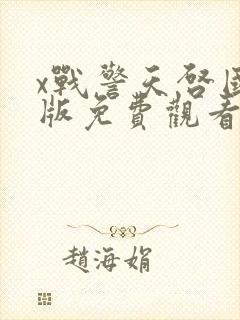 x戰警天啓國
版免費觀看
趙海娟